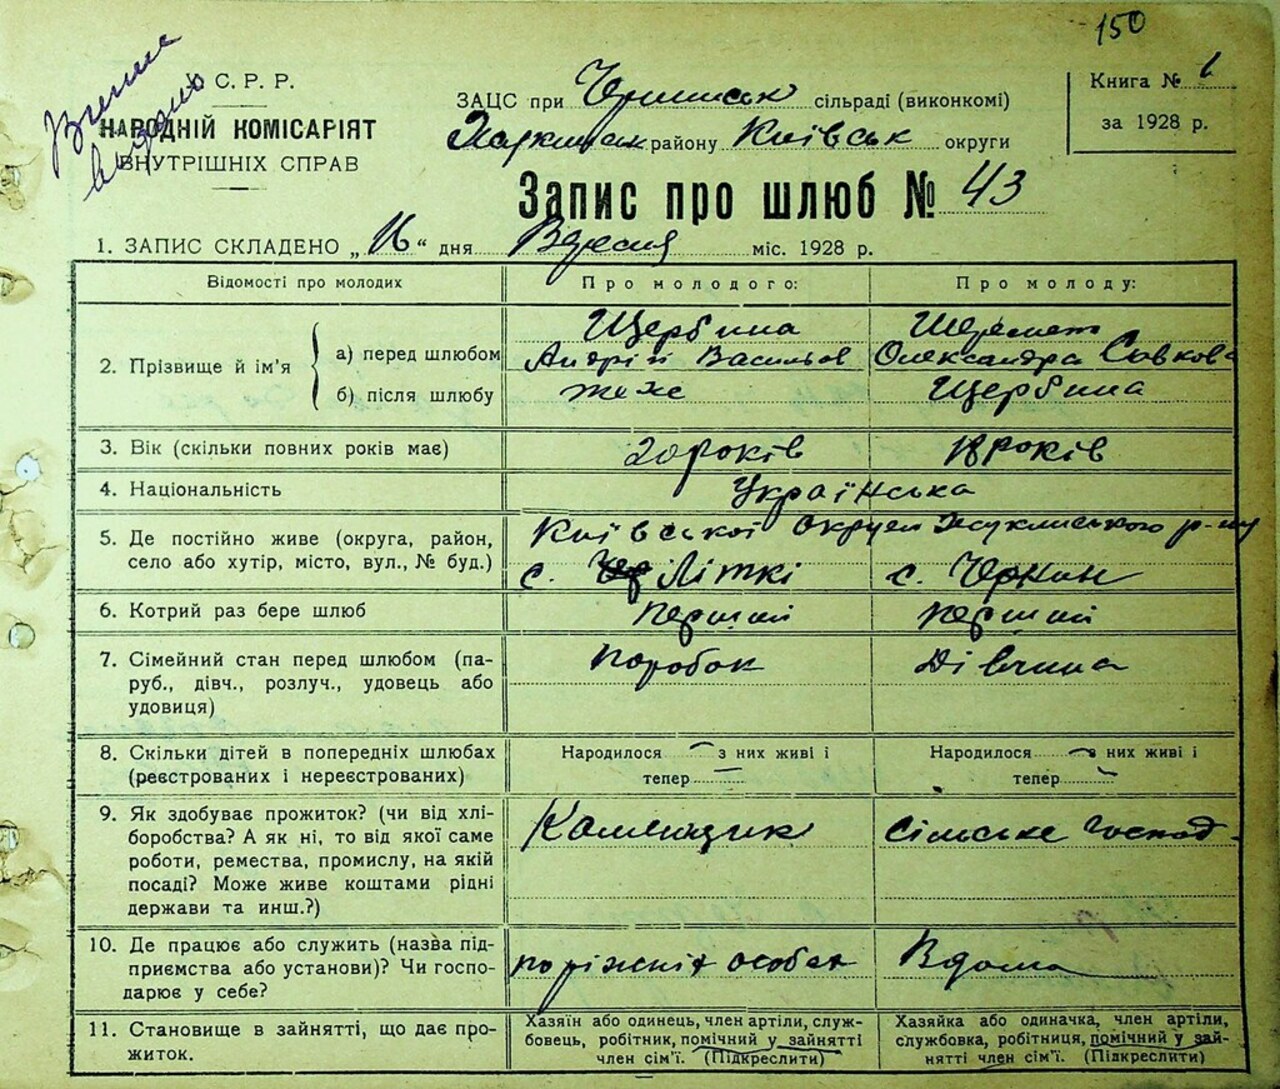 150
Випис
видано
У. С. Р. Р.
НАРОДНІЙ КОМІСАРІЯТ
ВНУТРІШНІХ СПРАВ
ЗАЦС при сільраді (виконкомі)
району Київськ округи
Книга № 1
за 1928 р.
Запис про шлюб № 43
1. ЗАПИС СКЛАДЕНО „16“ дня Вересня міс. 1928 р.
Відомості про молодих
Про молодого:
Про молоду:
2. Прізвище й ім'я
а) перед шлюбом
б) після шлюбу
Щербина
Андрій Васильов
теже
Шеремет
Олександра Савкова
Щербина
3. Вік (скільки повних років має)
20 років
18 років
4. Національність
Українська
5. Де постійно живе (округа, район,
село або хутір, місто, вул., № буд.)
Київської округи р-ну
с. Літкі
с. Чернин
6. Котрий раз бере шлюб
перший
перший
7. Сімейний стан перед шлюбом (па-
руб., дівч., розлуч., удовець або
удовиця)
поробок
Дівчина
8. Скільки дітей в попередніх шлюбах
(реєстрованих і нереєстрованих)
Народилося — з них живі і
тепер —
Народилося — з них живі і
тепер —
9. Як здобуває прожиток? (чи від хлі-
боробства? А як ні, то від якої саме
роботи, ремества, промислу, на якій
посаді? Може живе коштами рідні
держави та инш.?)
Каменщик
Сільське господ.
10. Де працює або служить (назва під-
приємства або установи)? Чи госпо-
дарює у себе?
поріжніх особах
Вдома
11. Становище в зайнятті, що дає про-
житок.
Хазяїн або одинець, член артіли, служ-
бовець, робітник, помічний у зайнятті
член сім'ї. (Підкреслити)
Хазяйка або одиначка, член артіли,
службовка, робітниця, помічний у зай-
нятті член сім'ї. (Підкреслити)